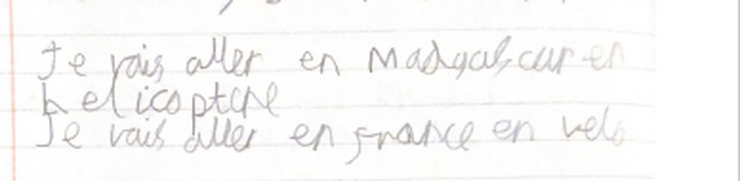 Je vais aller en Madgascar en
helicoptere
Je vais aller en france en velo